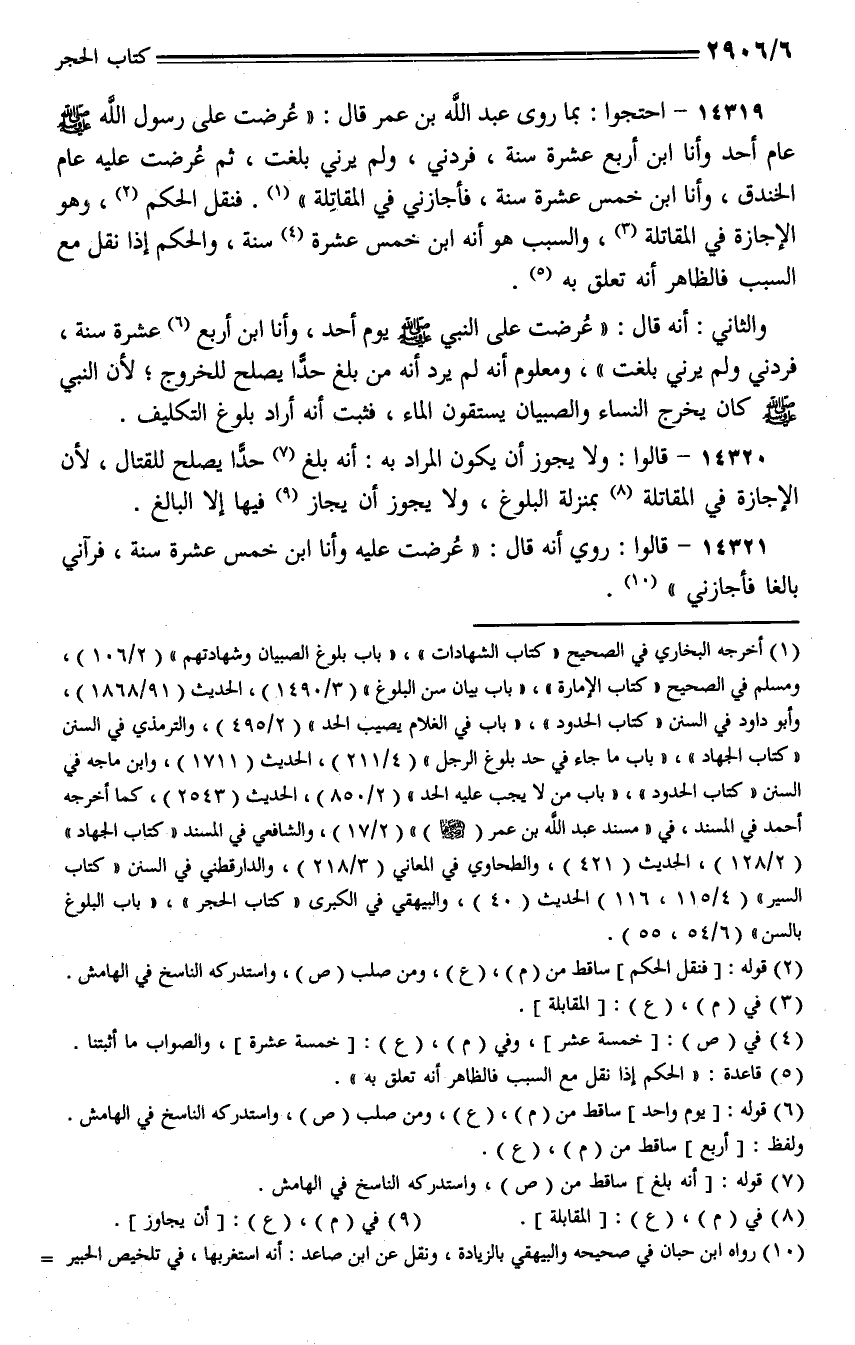 ٢٩٠٦/٦ كتاب الحجر
١٤٣١٩ - احتجوا : بما روى عبد اللَّه بن عمر قال : « عُرضت على رسول اللَّه ﷺ
عام أحد وأنا ابن أربع عشرة سنة ، فردني ، ولم يرني بلغت ، ثم عُرضت عليه عام
الخندق ، وأنا ابن خمس عشرة سنة ، فأجازني في المقاتِلة » (١) . فنقل الحكم (٢) ، وهو
الإجازة في المقاتلة (٣) ، والسبب هو أنه ابن خمس عشرة (٤) سنة ، والحكم إذا نقل مع
السبب فالظاهر أنه تعلق به (٥) .
والثاني : أنه قال : « عُرضت على النبي ﷺ يوم أحد ، وأنا ابن أربع (٦) عشرة سنة ،
فردني ولم يرني بلغت » ، ومعلوم أنه لم يرد أنه من بلغ حدًّا يصلح للخروج ؛ لأن النبي
ﷺ كان يخرج النساء والصبيان يستقون الماء ، فثبت أنه أراد بلوغ التكليف .
١٤٣٢٠ - قالوا : ولا يجوز أن يكون المراد به : أنه بلغ (٧) حدًّا يصلح للقتال ، لأن
الإجازة في المقاتلة (٨) بمنزلة البلوغ ، ولا يجوز أن يجاز (٩) فيها إلا البالغ .
١٤٣٢١ - قالوا : روي أنه قال : « عُرضت عليه وأنا ابن خمس عشرة سنة ، فرآني
بالغا فأجازني » (١٠) .
(١) أخرجه البخاري في الصحيح « كتاب الشهادات » ، « باب بلوغ الصبيان وشهادتهم » ( ١٠٦/٢ ) ،
ومسلم في الصحيح « كتاب الإمارة » ، « باب بيان سن البلوغ » ( ١٤٩٠/٣ ) ، الحديث ( ١٨٦٨/٩١ ) ،
وأبو داود في السنن « كتاب الحدود » ، « باب في الغلام يصيب الحد » ( ٤٩٥/٢ ) ، والترمذي في السنن
« كتاب الجهاد » ، « باب ما جاء في حد بلوغ الرجل » ( ٢١١/٤ ) ، الحديث ( ١٧١١ ) ، وابن ماجه في
السنن « كتاب الحدود » ، « باب من لا يجب عليه الحد » ( ٨٥٠/٢ ) ، الحديث ( ٢٥٤٣ ) ، كما أخرجه
أحمد في المسند ، في « مسند عبد اللَّه بن عمر ( ) » ( ١٧/٢ ) ، والشافعي في المسند « كتاب الجهاد »
( ١٢٨/٢ ) ، الحديث ( ٤٢١ ) ، والطحاوي في المعاني ( ٢١٨/٣ ) ، والدارقطني في السنن « كتاب
السير » ( ١١٥/٤ ، ١١٦ ) الحديث ( ٤٠ ) ، والبيهقي في الكبرى « كتاب الحجر » ، « باب البلوغ
بالسن » ( ٥٤/٦ ، ٥٥ ) .
(٢) قوله : [ فنقل الحكم ] ساقط من ( م ) ، ( ع ) ، ومن صلب ( ص ) ، واستدركه الناسخ في الهامش .
(٣) في ( م ) ، ( ع ) : [ المقابلة ] .
(٤) في ( ص ) : [ خمسة عشر ] ، وفي ( م ) ، ( ع ) : [ خمسة عشرة ] ، والصواب ما أثبتنا .
(٥) قاعدة : « الحكم إذا نقل مع السبب فالظاهر أنه تعلق به » .
(٦) قوله : [ يوم واحد ] ساقط من ( م ) ، ( ع ) ، ومن صلب ( ص ) ، واستدركه الناسخ في الهامش .
ولفظ : [ أربع ] ساقط من ( م ) ، ( ع ) .
(٧) قوله : [ أنه بلغ ] ساقط من ( ص ) ، واستدركه الناسخ في الهامش .
(٨) في ( م ) ، ( ع ) : [ المقابلة ] . (٩) في ( م ) ، ( ع ) : [ أن يجاوز ] .
(١٠) رواه ابن حبان في صحيحه والبيهقي بالزيادة ، ونقل عن ابن صاعد : أنه استغربها ، في تلخيص الحبير =